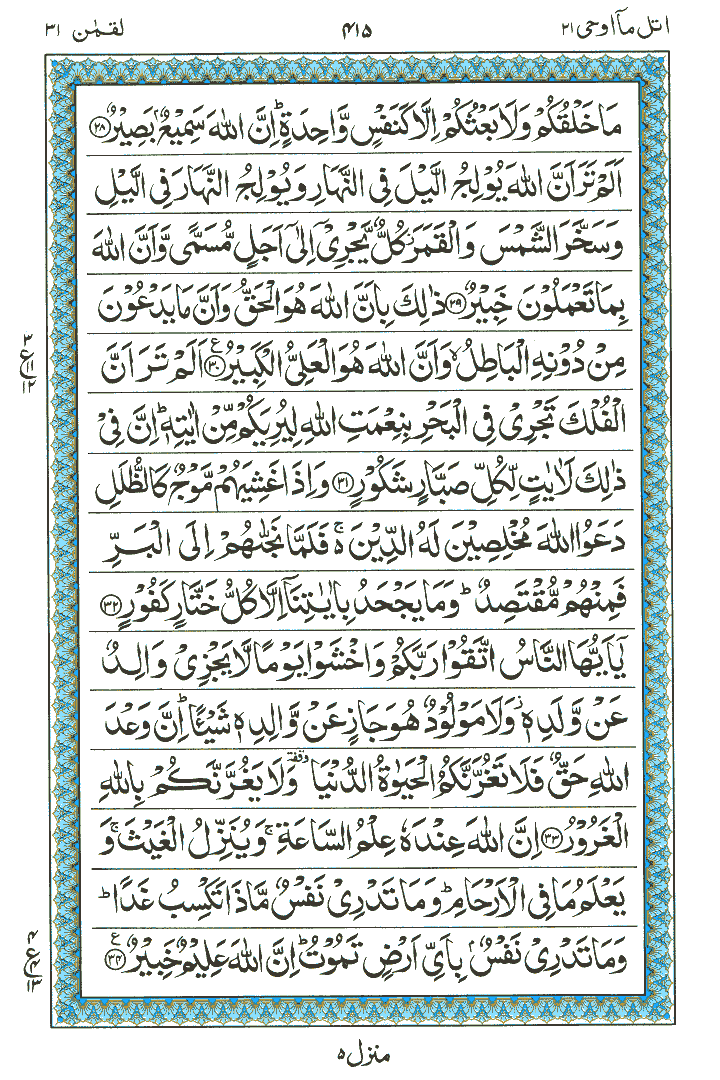 اتل مآ اوحی ۲۱
۴۱۵
لقمٰن ۳۱
مَا خَلْقُكُمْ وَلَا بَعْثُكُمْ اِلَّا كَنَفْسٍ وَّاحِدَةٍ ؕ اِنَّ اللّٰهَ سَمِیْعٌۢ بَصِیْرٌ ﴿۲۸﴾
اَلَمْ تَرَ اَنَّ اللّٰهَ یُوْلِجُ الَّیْلَ فِی النَّهَارِ وَیُوْلِجُ النَّهَارَ فِی الَّیْلِ
وَسَخَّرَ الشَّمْسَ وَالْقَمَرَ ؗ كُلٌّ یَّجْرِیْۤ اِلٰۤی اَجَلٍ مُّسَمًّی وَّاَنَّ اللّٰهَ
بِمَا تَعْمَلُوْنَ خَبِیْرٌ ﴿۲۹﴾ ذٰلِكَ بِاَنَّ اللّٰهَ هُوَ الْحَقُّ وَاَنَّ مَا یَدْعُوْنَ
مِنْ دُوْنِهِ الْبَاطِلُ ۙ وَاَنَّ اللّٰهَ هُوَ الْعَلِیُّ الْكَبِیْرُ ﴿۳۰﴾ ع اَلَمْ تَرَ اَنَّ
۳
ع ۱۱
۱۲
الْفُلْكَ تَجْرِیْ فِی الْبَحْرِ بِنِعْمَتِ اللّٰهِ لِیُرِیَكُمْ مِّنْ اٰیٰتِهٖ ؕ اِنَّ فِیْ
ذٰلِكَ لَاٰیٰتٍ لِّكُلِّ صَبَّارٍ شَكُوْرٍ ﴿۳۱﴾ وَاِذَا غَشِیَهُمْ مَّوْجٌ كَالظُّلَلِ
دَعَوُا اللّٰهَ مُخْلِصِیْنَ لَهُ الدِّیْنَ ۚ۬ فَلَمَّا نَجّٰىهُمْ اِلَی الْبَرِّ
فَمِنْهُمْ مُّقْتَصِدٌ ؕ وَمَا یَجْحَدُ بِاٰیٰتِنَاۤ اِلَّا كُلُّ خَتَّارٍ كَفُوْرٍ ﴿۳۲﴾
یٰۤاَیُّهَا النَّاسُ اتَّقُوْا رَبَّكُمْ وَاخْشَوْا یَوْمًا لَّا یَجْزِیْ وَالِدٌ
عَنْ وَّلَدِهٖ ؗ وَلَا مَوْلُوْدٌ هُوَ جَازٍ عَنْ وَّالِدِهٖ شَیْـًٔا ؕ اِنَّ وَعْدَ
اللّٰهِ حَقٌّ فَلَا تَغُرَّنَّكُمُ الْحَیٰوةُ الدُّنْیَا وقفة وَلَا یَغُرَّنَّكُمْ بِاللّٰهِ
الْغَرُوْرُ ﴿۳۳﴾ اِنَّ اللّٰهَ عِنْدَهٗ عِلْمُ السَّاعَةِ ۚ وَیُنَزِّلُ الْغَیْثَ ۚ وَ
یَعْلَمُ مَا فِی الْاَرْحَامِ ؕ وَمَا تَدْرِیْ نَفْسٌ مَّاذَا تَكْسِبُ غَدًا ؕ
وَمَا تَدْرِیْ نَفْسٌۢ بِاَیِّ اَرْضٍ تَمُوْتُ ؕ اِنَّ اللّٰهَ عَلِیْمٌ خَبِیْرٌ ﴿۳۴﴾ ع
۴
ع ۴
۱۳
منزل ۵